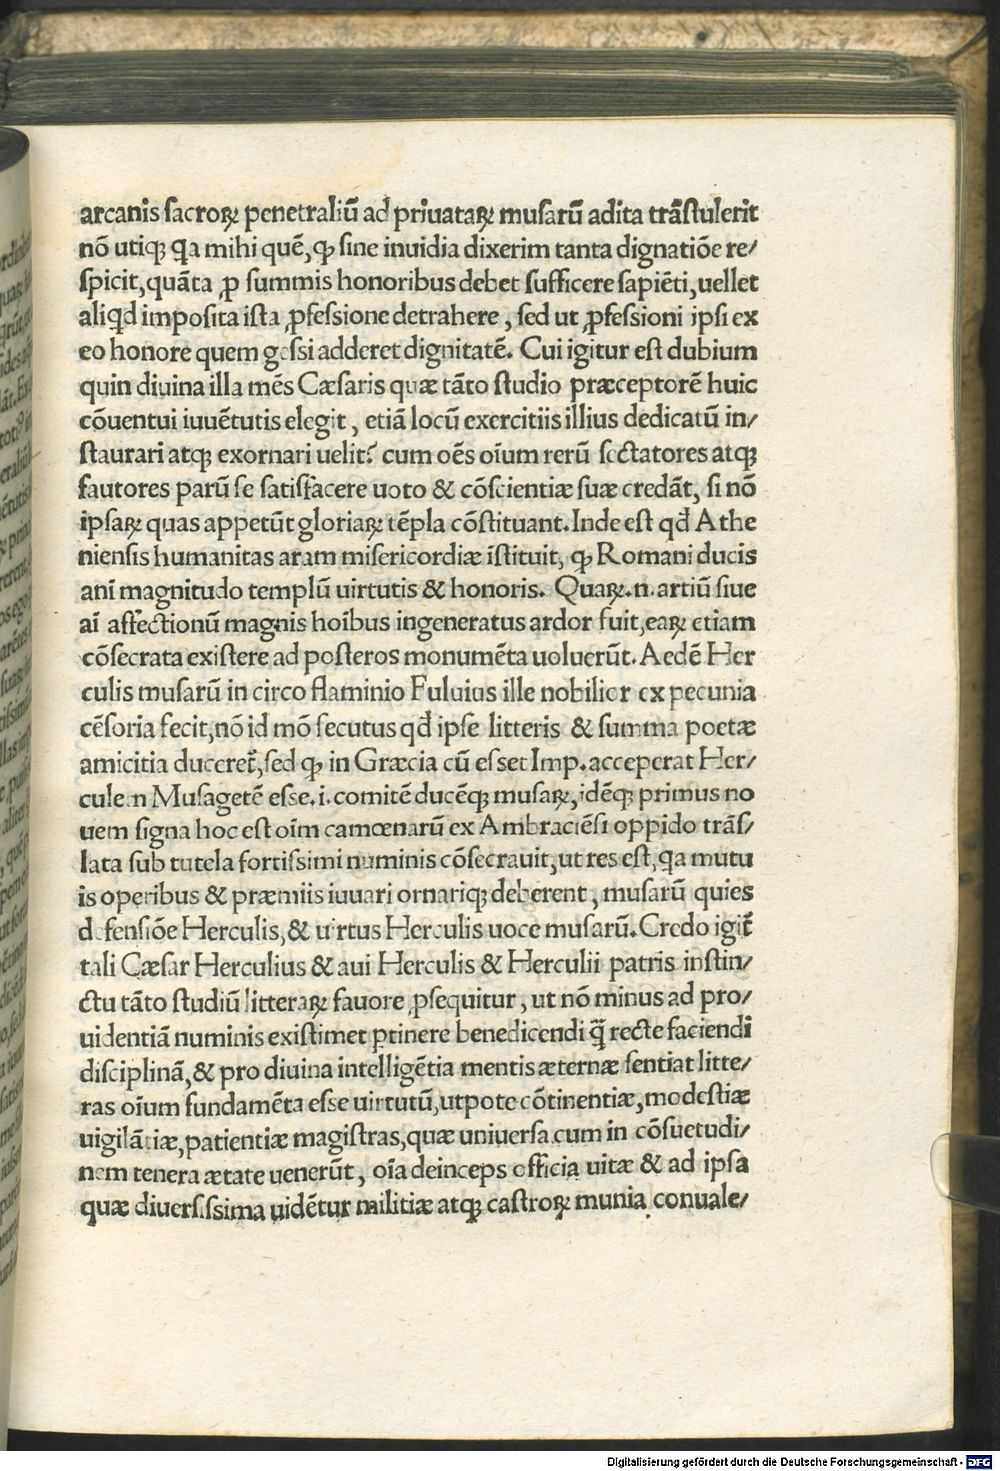 arcanis ſacroꝝ penetraliū ad priuataꝝ muſarū adita trāſtulerit
nō utiqꝫ qa mihi quē, ꝙ ſine inuidia dixerim tanta dignatiōe re/
ſpicit, quāta ꝓ ſummis honoribus debet ſufficere ſapiēti, uellet
aliqd impoſita iſta ꝓfeſſione detrahere, ſed ut ꝓfeſſioni ipſi ex
eo honore quem geſſi adderet dignitatē. Cui igitur eſt dubium
quin diuina illa mēs Cæſaris quæ tāto ſtudio præceptorē huic
cōuentui iuuētutis elegit, etiā locū exercitiis illius dedicatū in/
ſtaurari atqꝫ exornari uelit? cum oēs oīum rerū ſectatores atqꝫ
fautores parū ſe ſatiſfacere uoto & cōſcientiæ ſuæ credāt, ſi nō
ipſaꝝ quas appetūt gloriaꝝ tēpla cōſtituant. Inde eſt qđ Athe
nienſis humanitas aram miſericordiæ īſtituit, ꝙ Romani ducis
ani magnitudo templū uirtutis & honoris. Quaꝝ.n. artiū ſiue
aī affectionū magnis hoībus ingeneratus ardor fuit, eaꝝ etiam
cōſecrata exiſtere ad poſteros monumēta uoluerūt. Aedē Her
culis muſarū in circo flaminio Fuluius ille nobilior ex pecunia
cēſoria fecit, nō id mō ſecutus qđ ipſe litteris & ſumma poetæ
amicitia duceret̄, ſed ꝙ in Græcia cū eſſet Imp. acceperat Her/
culem Muſagetē eſſe.i. comitē ducēqꝫ muſaꝝ, idēqꝫ primus no
uem ſigna hoc eſt oīm camœnarū ex Ambraciēſi oppido trāſ/
lata ſub tutela fortiſſimi numinis cōſecrauit, ut res eſt, qa mutu
is operibus & præmiis iuuari ornariqꝫ deberent, muſarū quies
defenſiōe Herculis, & uirtus Herculis uoce muſarū. Credo igit̄
tali Cæſar Herculius & aui Herculis & Herculii patris inſtin/
ctu tāto ſtudiū litteraꝝ fauore ꝓſequitur, ut nō minus ad pro/
uidentiā numinis exiſtimet ꝑtinere benedicendi q̄̃ recte faciendi
diſciplinā, & pro diuina intelligētia mentis æternæ ſentiat litte/
ras oīum fundamēta eſſe uirtutū, utpote cōtinentiæ, modeſtiæ
uigilātiæ, patientiæ magiſtras, quæ uniuerſa cum in cōſuetudi/
nem tenera ætate uenerūt, oīa deinceps officia uitæ & ad ipſa
quæ diuerſiſſima uidētur militiæ atqꝫ caſtroꝝ munia conuale/
Digitalisierung gefördert durch die Deutsche Forschungsgemeinschaft - DFG